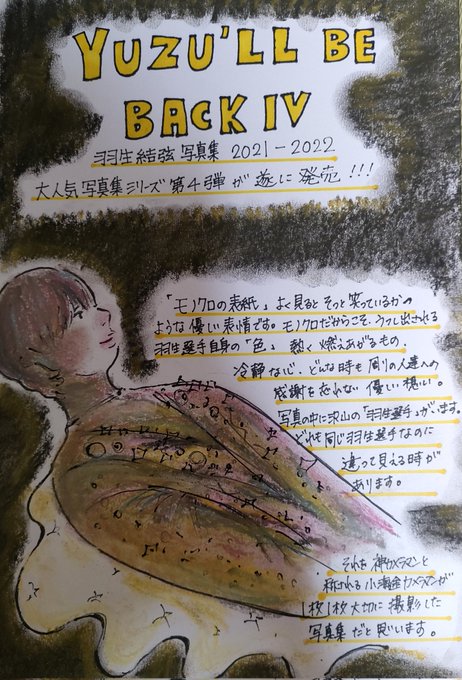 YUZU'LL BE
BACK IV
羽生結弦 写真集 2021-2022
大人気写真集シリーズ第4弾が遂に発売!!!
「モノクロの表紙」よく見るとそっと笑っているかの
ような優しい表情です。モノクロだからこそ、うつし出される
羽生選手自身の「色」 熱く燃えあがるもの、
冷静な心、どんな時も周りの人達への
感謝を忘れない優しい想い。
写真の中に沢山の「羽生選手」がいます。
どれも同じ羽生選手なのに
違って見える時が
あります。
それを神カメラマンと
称される小海途カメラマンが
1枚1枚大切に撮影した
写真集だと思います。